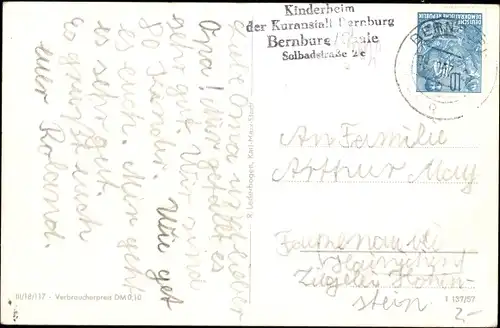 Kinderheim
der Kuranstalt Bernburg
Bernburg / Saale
Solbadstraße 2e
DEUTSCHE
DEMOKRATISCHE REPUBLIK
BERNBURG
Liebe Oma u. lieber
Opa! Mir gefällt es
sehr gut. Wir sind
80 Kinder. Wie get
es euch. Mir geht
es sehr gut.
Es grüßt euch
euer Roland.
R. Lederbogen, Karl-Marx-Stadt
An Familie
Arthur May
Falkenau
Ziegelei Hohen-
stein
III/18/117 - Verbraucherpreis DM 0,10
I 157/57
2,-